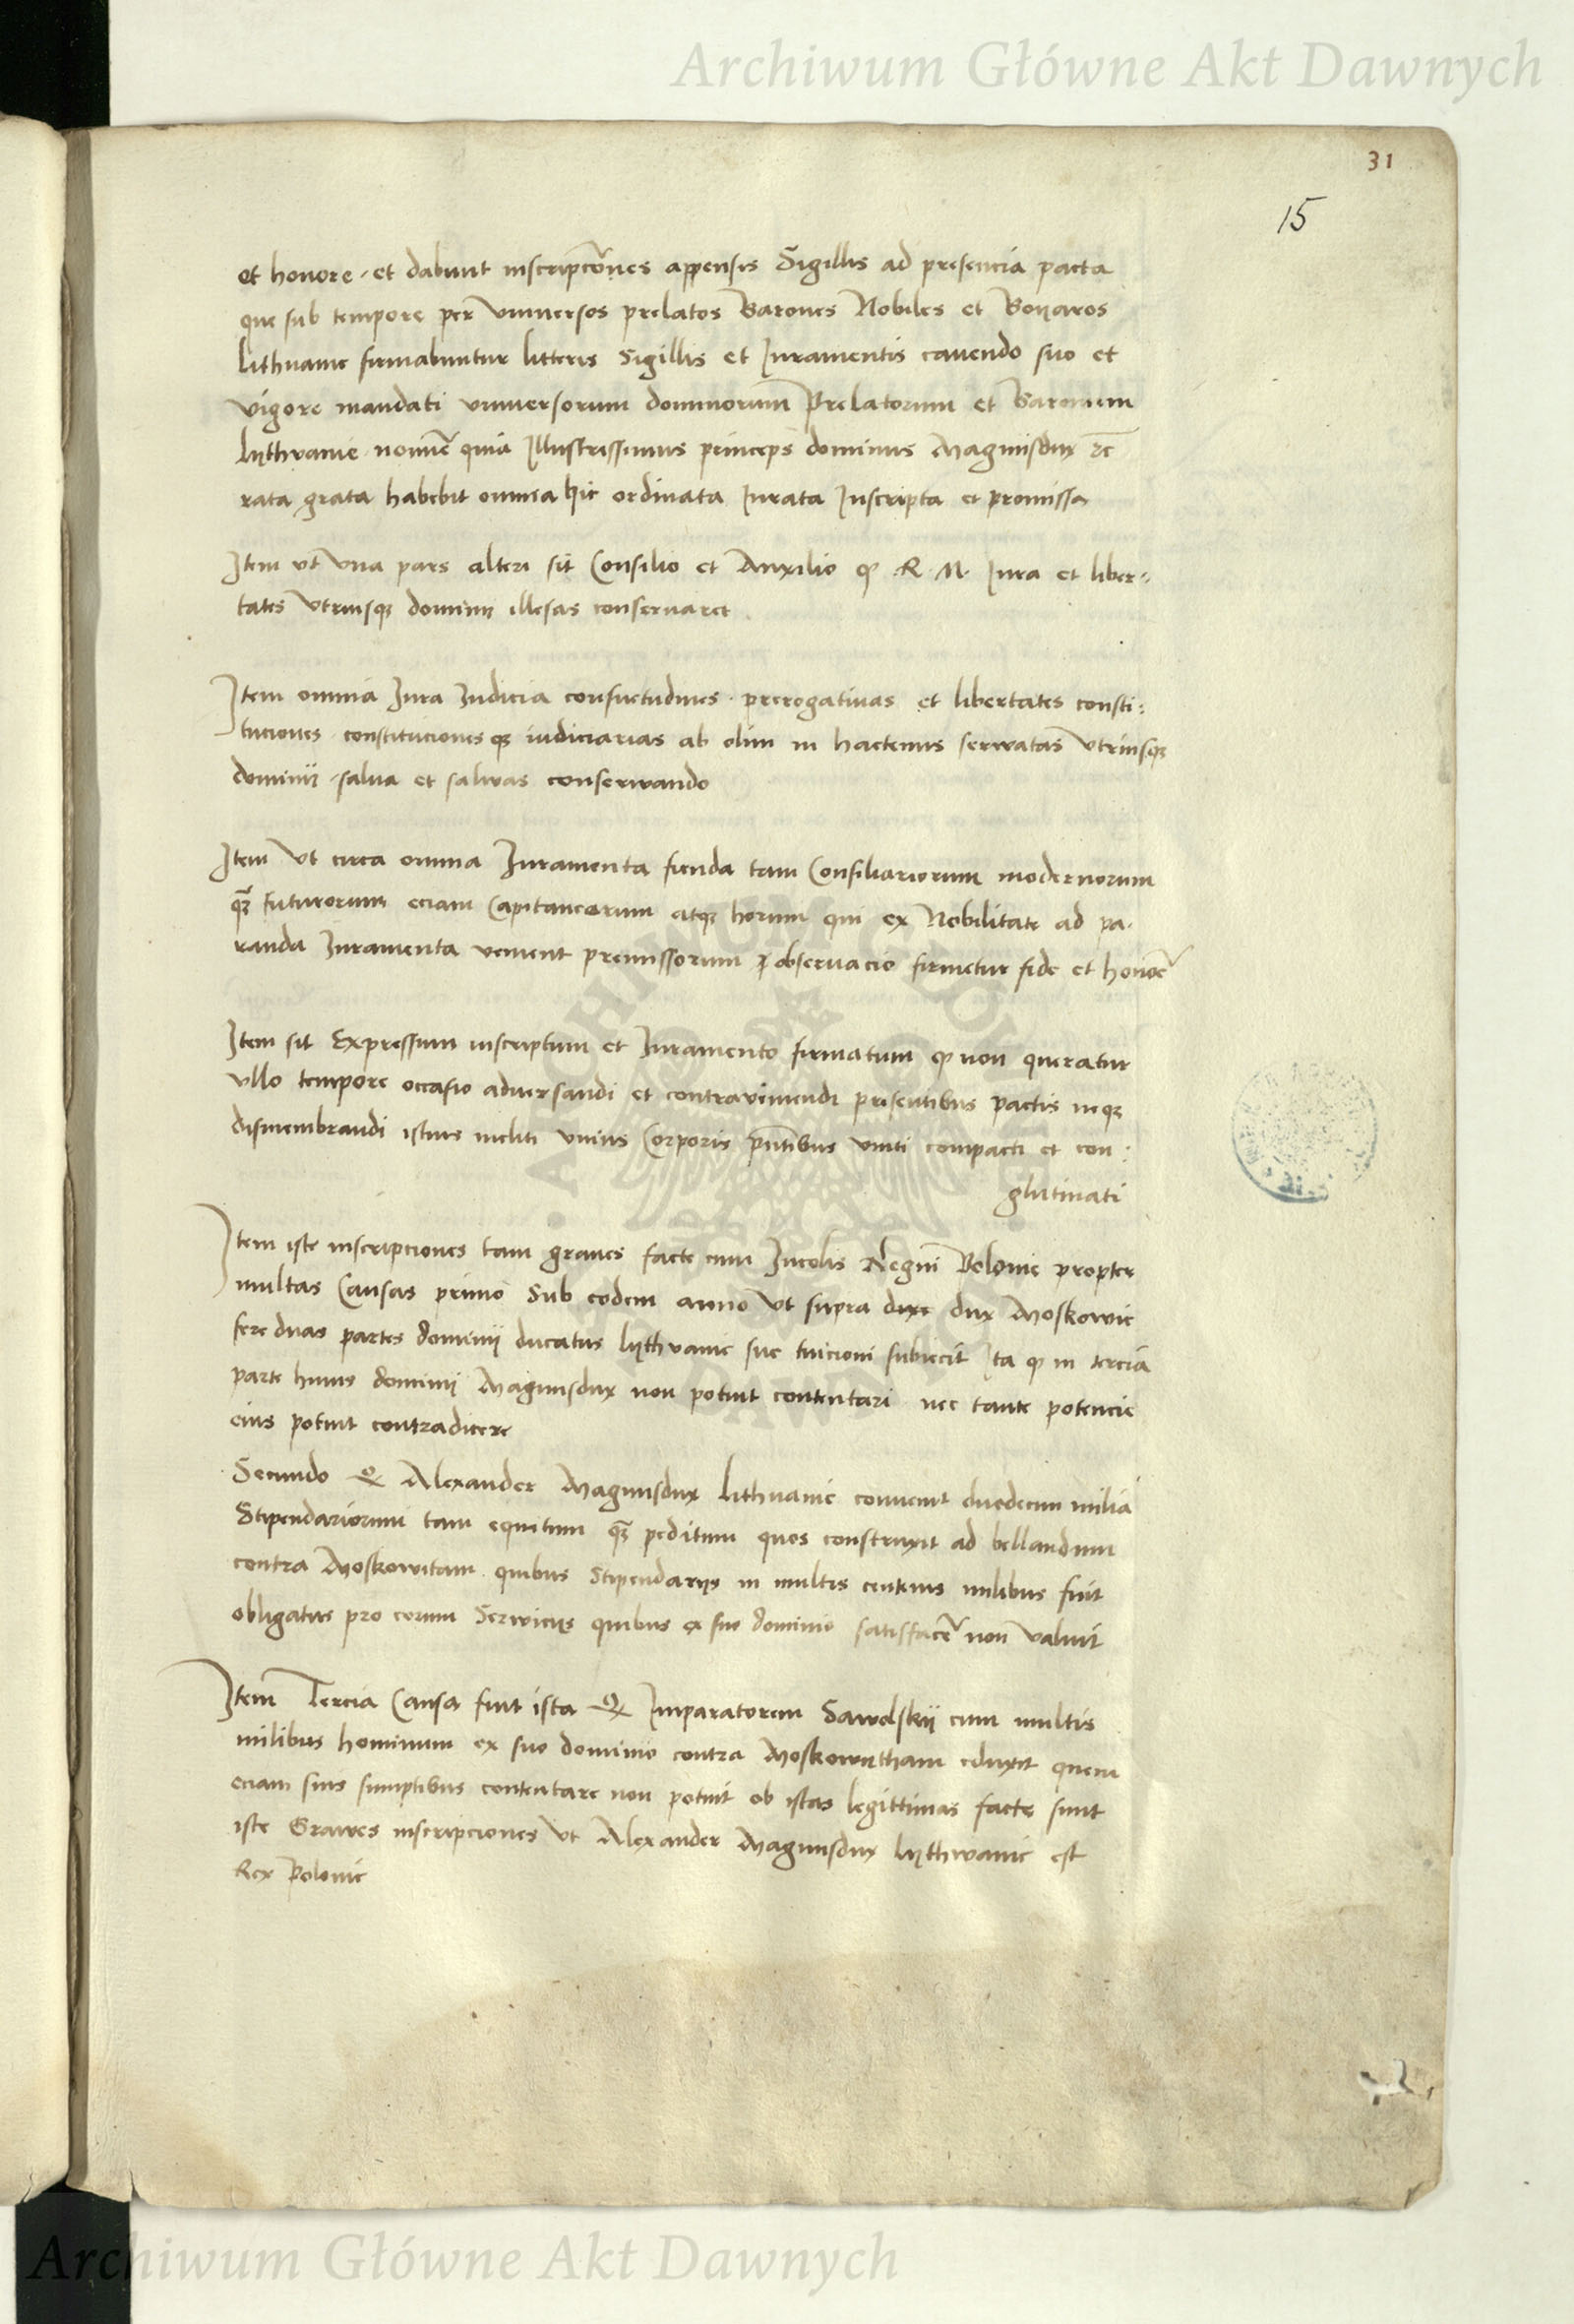 Archiwum Główne Akt Dawnych
31
15
et honore · et dabunt inscripcōnes appensis Sigillis ad presencia pacta
que sub tempore per Vniversos prelatos Barones Nobiles et Boyaros
Lithvanie firmabuntur litteris Sigillis et Iuramentis cavendo suo et
vigore mandati vniversorum dominorum Prelatorum et Baronum
Lythvanie nomīe quia Illustrissimus princeps dominus Magnusdux ꝛc̄
rata grata habebit omnia hic ordinata Iurata Inscripta et promissa
Item vt Vna pars alteri sit Consilio et Auxilio ꝙ R · M · Iura et liber-
tates Vtriusqꝫ dominii illesas conservaret .
Item omnia Iura Iudicia consuetudines · prerogativas et libertates consti:
tuciones · constitucionesqꝫ iudiciarias ab olim in hactenus serwatas Vtriusqꝫ
dominii · salva et salwas conserwando
Item Vt circa omnia Iuramenta fienda tam Consiliariorum modernorum
qꝫ̄ futurorum eciam Capitaneorum atqꝫ horum qui ex Nobilitate ad pa-
randa Iuramenta venient premissorum observacio firmetur fide et honoē
Item sit Expressum inscriptum et Iuramento firmatum ꝙ non queratur
vllo tempore occasio adversandi et contraviniendi presentibus pactis neqꝫ
dismembrandi istius incliti vnius Corporis pn̄tibus vniti compacti et con:
glutinati
Item iste inscripciones tam graves facte cum Incolis Regni Polonie propter
multas Causas primo Sub eodem anno Vt supra duxe dux Moskowie
fere duas partes dominii ducatus Lythvanie sue tuicioni subiecit Ita ꝙ in tercia
parte huius dominii Magnusdux non potuit contentari nec tante potencie
eius potuit contradicere
Secundo Ꝙ Alexander Magnusdux Lithvanie convenit duedecim milia
Stipendariorum tam equitum qꝫ̄ peditum quos construxit ad bellandum
contra Moskowitam quibus Stipendariis in multis centenis milibus fuit
obligatus pro eorum Serviciis quibus ex suo dominio satisfacē non valuit
Item Tercia Causa fuit ista Ꝙ Imparatorem Sawolskii cum multis
milibus hominum ex suo dominio contra Moskowitham eduxit quem
eciam suis sumptibus contentare non potuit ob istas legittimas facte sunt
iste Grawes inscripciones Vt Alexander Magnusdux Lythwanie est
Rex Polonie
Archiwum Główne Akt Dawnych